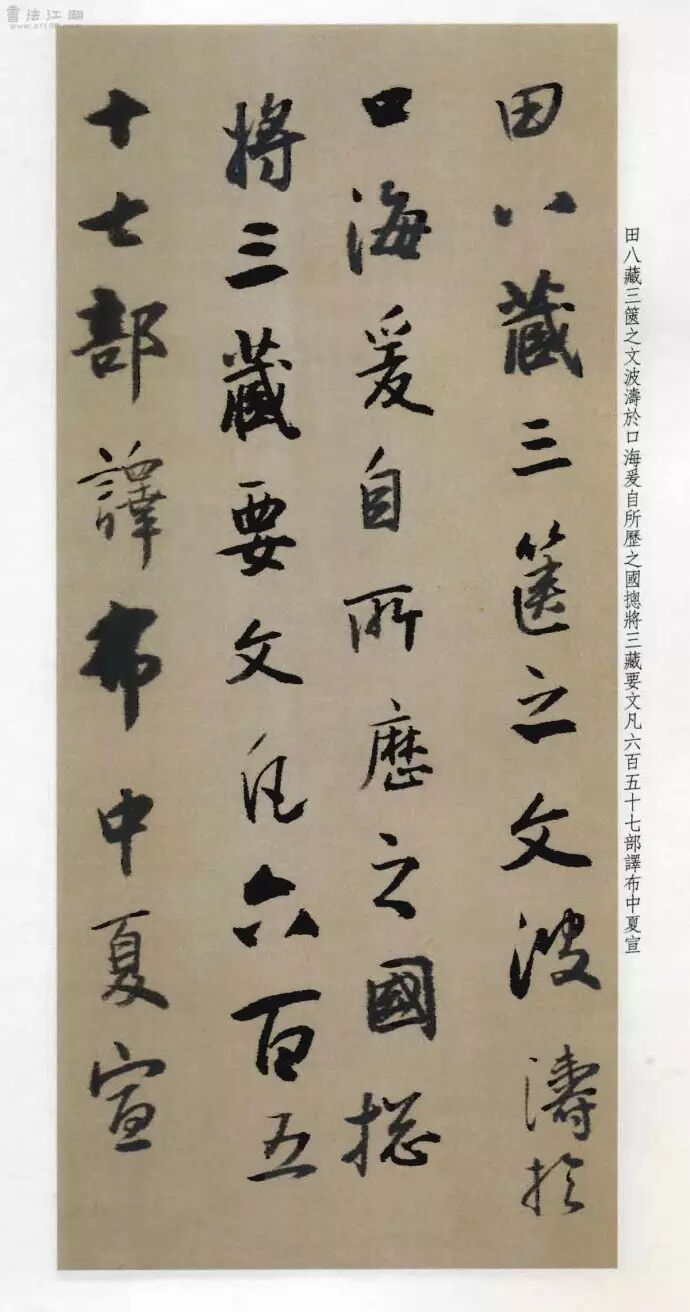 書法江湖
田八藏三箧之文波濤於
口海爰自所歷之國揔
將三藏要文凡六百五
十七部譯布中夏宣
田八藏三箧之文波濤於口海爰自所歷之國摠將三藏要文凡六百五十七部譯布中夏宣